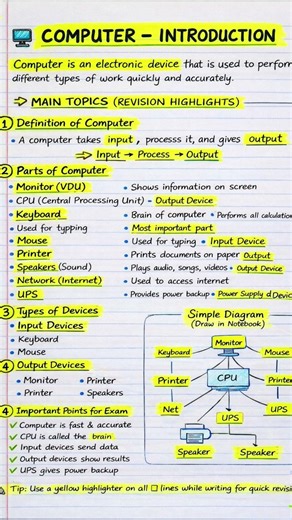 COMPUTER – INTRODUCTION
Computer is an electronic device that is used to perform
different types of work quickly and accurately.
MAIN TOPICS (REVISION HIGHLIGHTS)
1 Definition of Computer
• A computer takes input, processs it, and gives output
Input → Process → Output
2 Parts of Computer
Monitor (VDU) • Shows information on screen
CPU (Central Processing Unit) – Output Device
Keyboard • Brain of computer • Performs all calculation
• Used for typping Most important part
Mouse • Used for typing • Input Device
Printer • Prints documents on paper Output
Speakers (Sound) • Plays audio, songs, videos • Output Device
Network (Internet) • Used to access internet
UPS • Provides power backup • Power Supply d Devic
3 Types of Devices
Input Devices
• Keyboard
• Mouse
4 Output Devices
• Monitor • Printer
• Printer • Speakers
4 Important Points for Exam
✓ Computer is fast & accurate
✓ CPU is called the brain
✓ Input devices send data
✓ Output devices show results
✓ UPS gives power backup
Simple Diagram
(Draw in Notebook)
Monitor
Keyboard Mouse
CPU
Printer Printer
Net UPS
UPS
Speaker Speaker
Tip: Use a yellow highlighter on all ☐ lines while writing for quick revisi